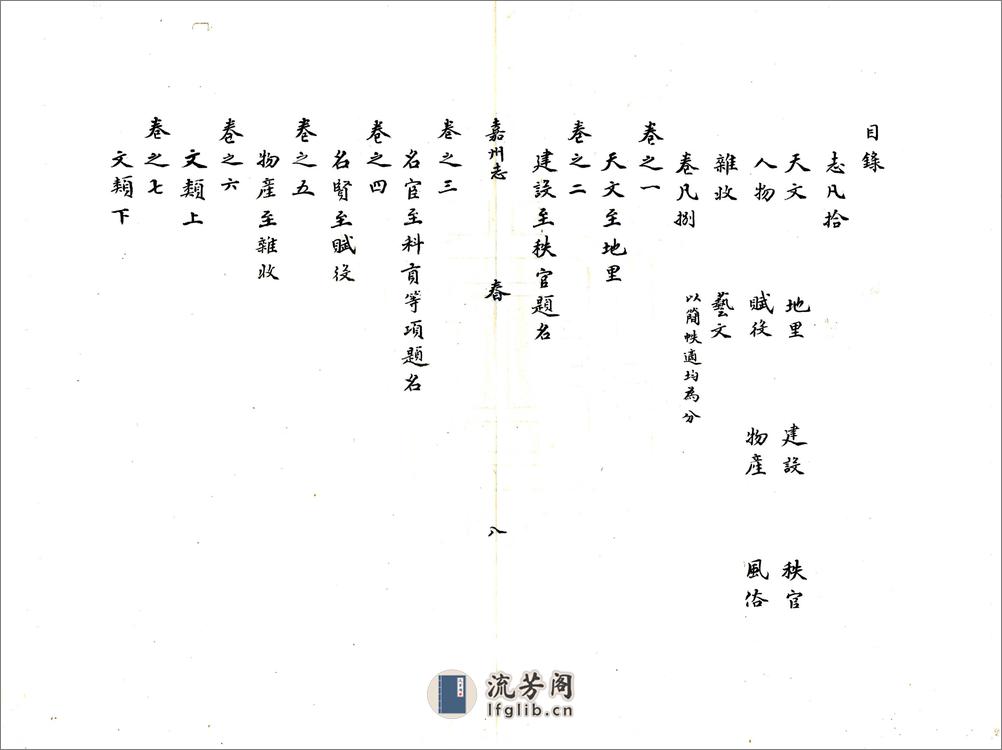 目錄
志凡拾
天文　地里　建設　秩官
人物　賦役　物產　風俗
雜收　藝文
卷凡捌　以簡帙適均為分
卷之一
天文至地里
卷之二
建設至秩官題名
嘉州志　春　八
卷之三
名宦至科貢等項題名
卷之四
名賢至賦役
卷之五
物產至雜收
卷之六
文類上
卷之七
文類下
流芳阁
lfglib.cn